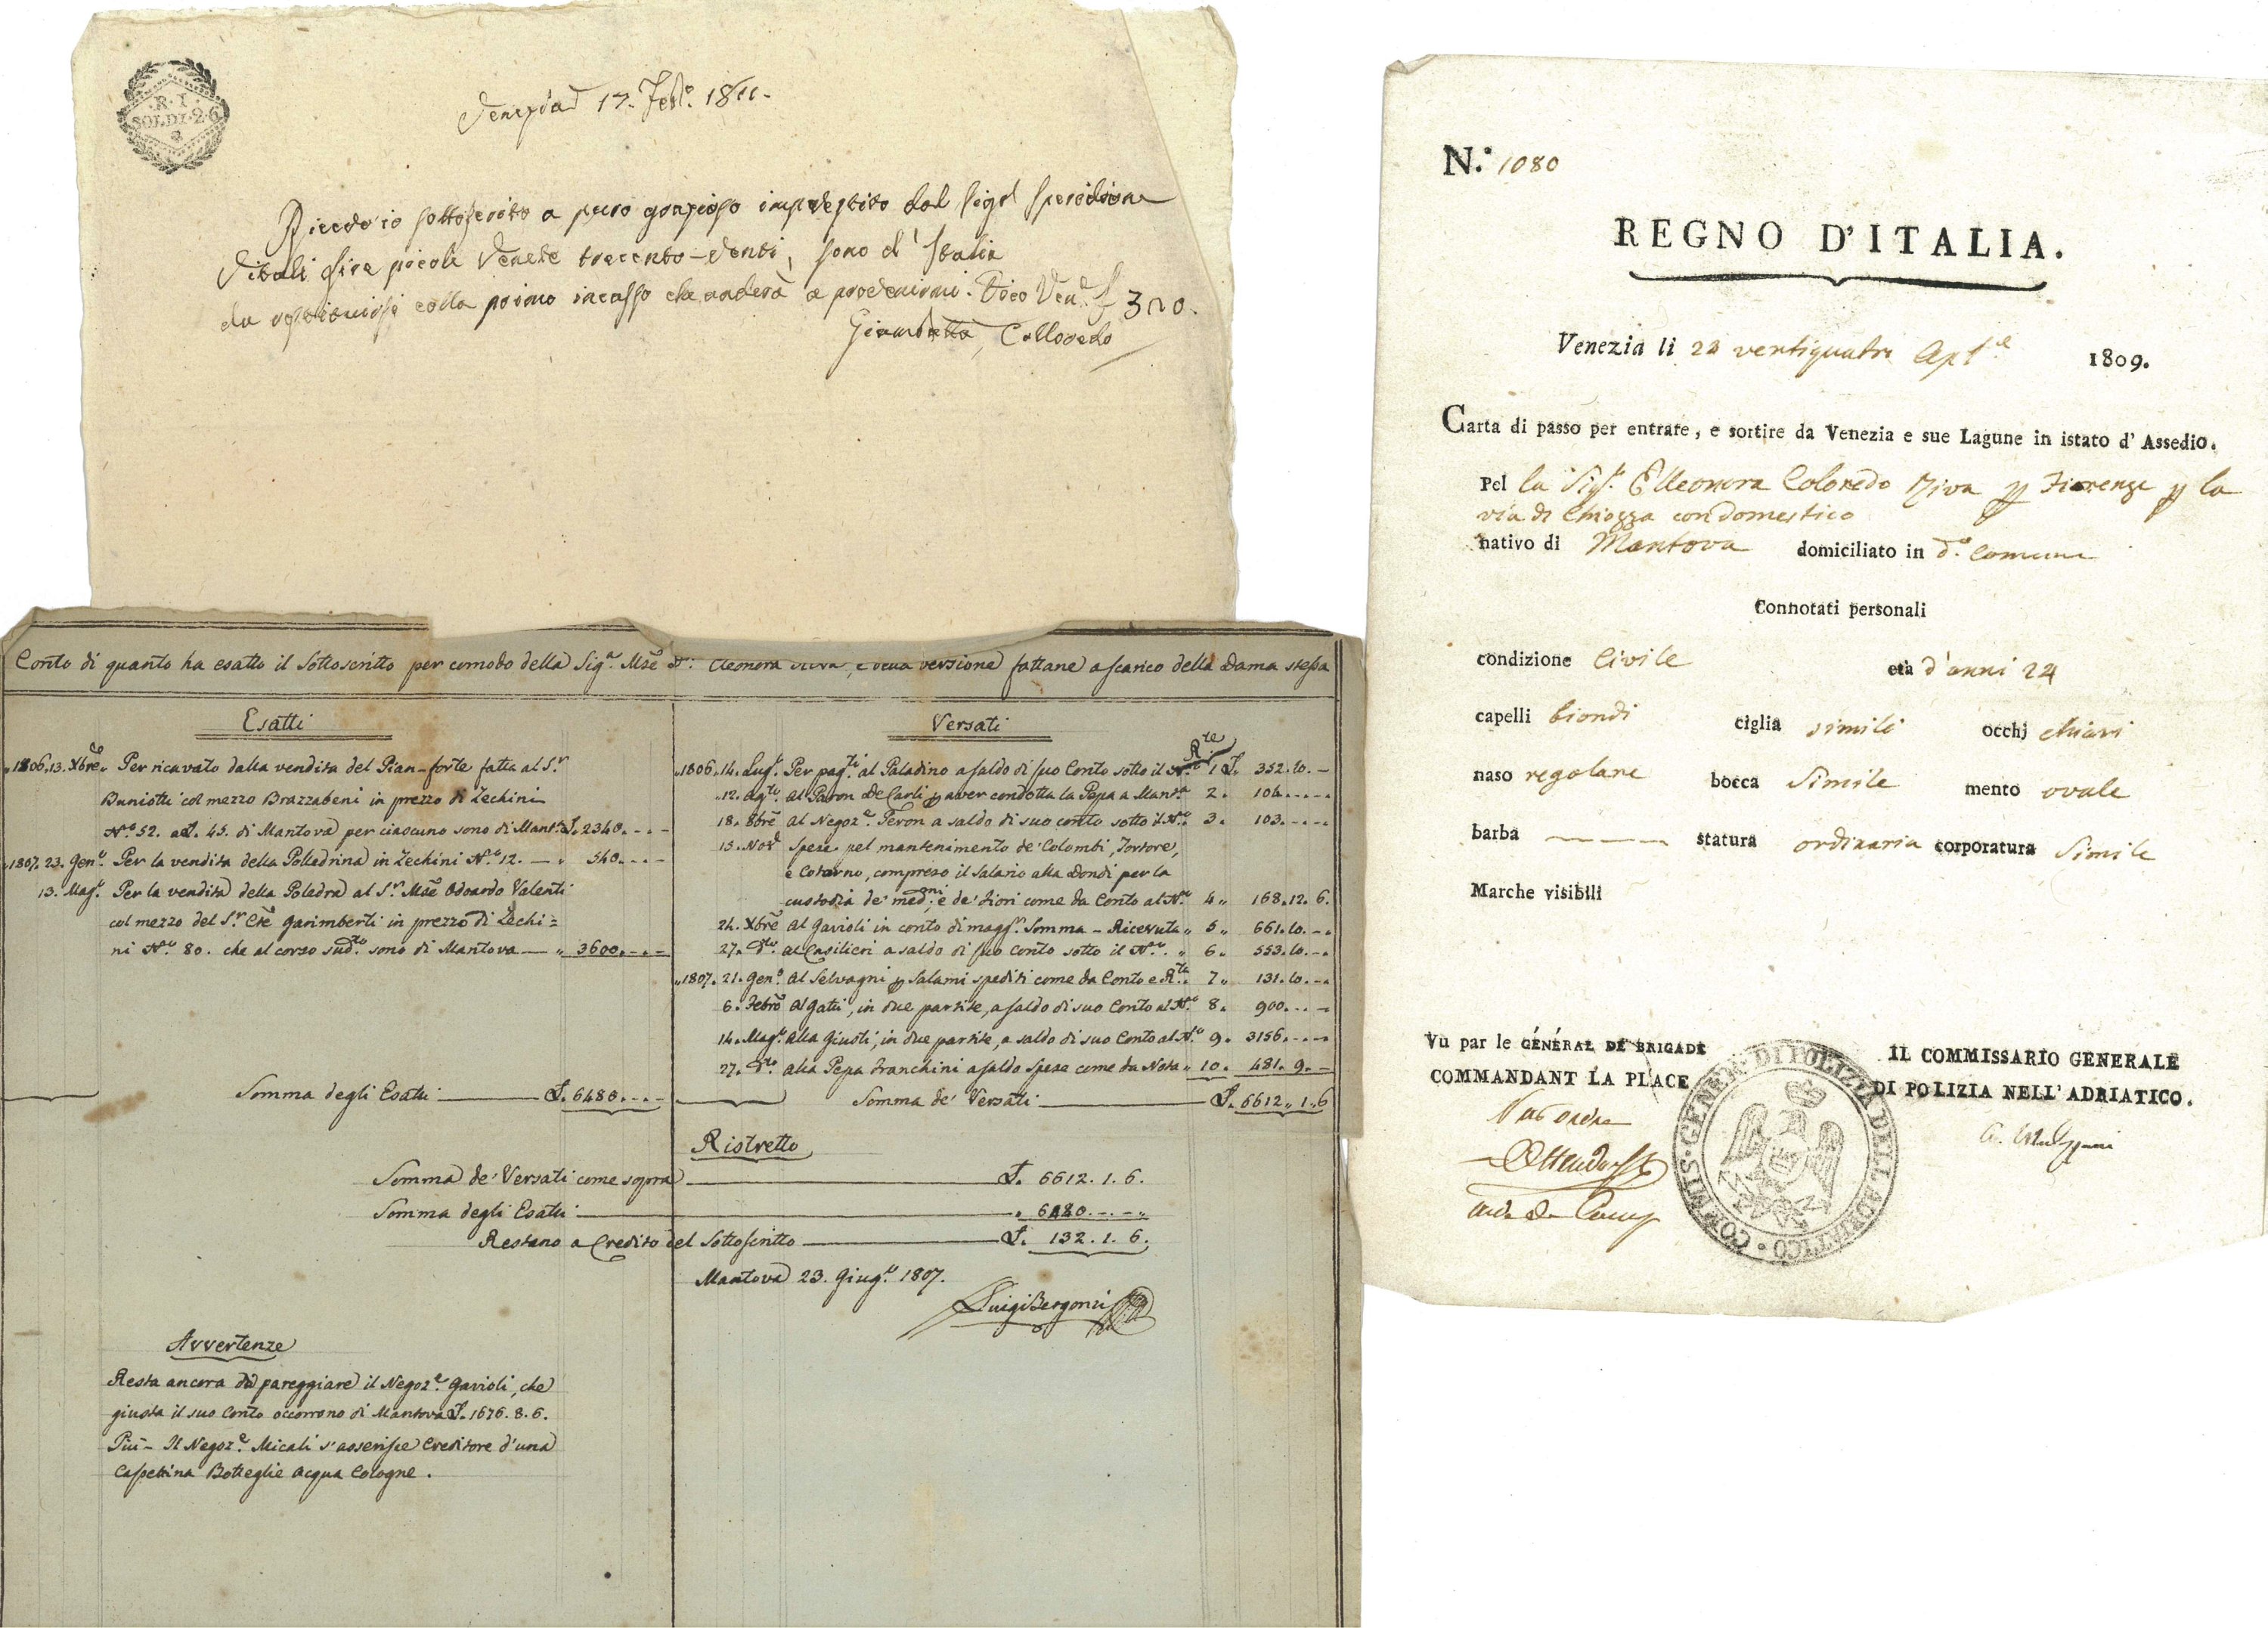 R. I.
SOLDI. 26
Venezia 17. Feb.o 1811.
Ricevo io sottoscritto a puro grazioso imprestito dal Sigr Speridione
Vitali Lire picole Venete trecento-venti, sono d' Italia
da restituirsi colla primo incasso che anderà a provenirmi. Dico Ven.e L 320.
Giambatta Colloredo
Conto di quanto ha esatto il Sottoscritto per comodo della Sig.a Mse Da: Eleonora Riva, e della versione fattane a scarico della Dama stessa
Esatti
1806. 13. Xbre. Per ricavato dalla vendita del Pian-forte fatta al S.r
Buniotti col mezzo Brazzabeni in prezzo di Zechini
N.o 52. a L. 45. di Mantova per ciascuno sono di Mant.a L. 2340. - . -
1807. 23. Gen.o Per la vendita della Polledrina in Zechini N.o 12. — " 540. - . -
13. Mag.o Per la vendita della Poledra al S.r Mse Odoardo Valenti
col mezzo del S.r Cte Garimberti in prezzo di Zechi=
ni N.o 80. che al corso sud.to sono di Mantova — " 3600. - . -
Somma degli Esatti — L. 6480. - . -
Versati
Rte
1806. 14. Lug.o Per pag.ti al Paladino a saldo di suo Conto sotto il N.o 1 L. 352. 10. -
12. Ag.to Al Paron De Carli p aver condotta la Pepa a Mant.a 2. 106. - . -
18. 8bre Al Negoz.e Peron a saldo di suo conto sotto il N.o 3. 103. - . -
15. Nov.e Spese pel mantenimento de' Colombi, Tortore,
e Cotorno, compreso il Salario alla Dondi per la
custodia de' med.gni e de' Fiori come da Conto al N.o 4 " 168. 12. 6.
24. Xbre Al Gavioli in conto di magg.r Somma - Ricevuta " 5 " 661. 10. -
27. d.to al Casilieri a saldo di suo Conto sotto il N.o " 6. 553. 10. -
1807. 21. Gen.o Al Selvagni p Salami spediti come da Conto e R.ta 7 " 131. 10. -
6. Febro Al Gatti, in due partite, a saldo di suo Conto al N.o 8. 900. - . -
14. Mag.o Alla Giusti, in due partite, a saldo di suo Conto al N.o 9. 3156. - . -
27. d.to Alla Pepa Franchini a saldo Spese come da Nota " 10. 481. 9. -
Somma de' Versati — L. 6612 " 1 " 6
Ristretto
Somma de' Versati come sopra — L. 6612. 1. 6.
Somma degli Esatti — " 6480. - . -
Restano a Credito del Sottoscritto — L. 132. 1. 6.
Mantova 23. Giug.o 1807.
Luigi Bergonzi
Avvertenze
Resta ancora da pareggiare il Negoz.e Gavioli, che
giusta il suo Conto occorrono di Mantova L. 1676. 8. 6.
Più - Il Negoz.e Micali s'asserisce Creditore d'una
Cassettina Botteglie Acqua Cologne.
N.o 1080
REGNO D'ITALIA.
Venezia li 24 ventiquattro Aple 1809.
Carta di passo per entrare, e sortire da Venezia e sue Lagune in istato d' Assedio.
Pel la Sig.a Elleonora Coloredo Riva p Firenze p la
via di Chiozza con domestico
nativo di Mantova domiciliato in d.o Comune
Connotati personali
condizione Civile età d'anni 24
capelli biondi ciglia simili occhj chiari
naso regolare bocca Simile mento ovale
barba — statura ordinaria corporatura Simile
Marche visibili
Vu par le GÉNÉRAL DE BRIGADE
COMMANDANT LA PLACE
Par ordre
aide de Camp
IL COMMISSARIO GENERALE
DI POLIZIA NELL' ADRIATICO.
COMMIS. GENER. DI POLIZIA DELL ADRIATICO